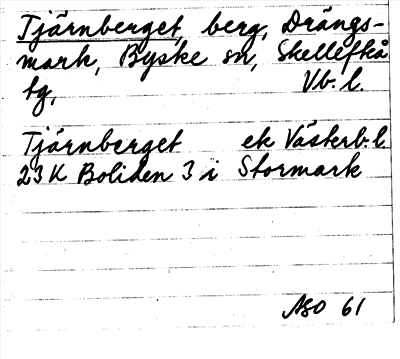 Tjärnberget, berg, Drängs-
mark, Byske sn, Skellefteå
tg, Vb. l.
Tjärnberget ek Västerb. l
23 K Boliden 3 i Stormark
ASO 61